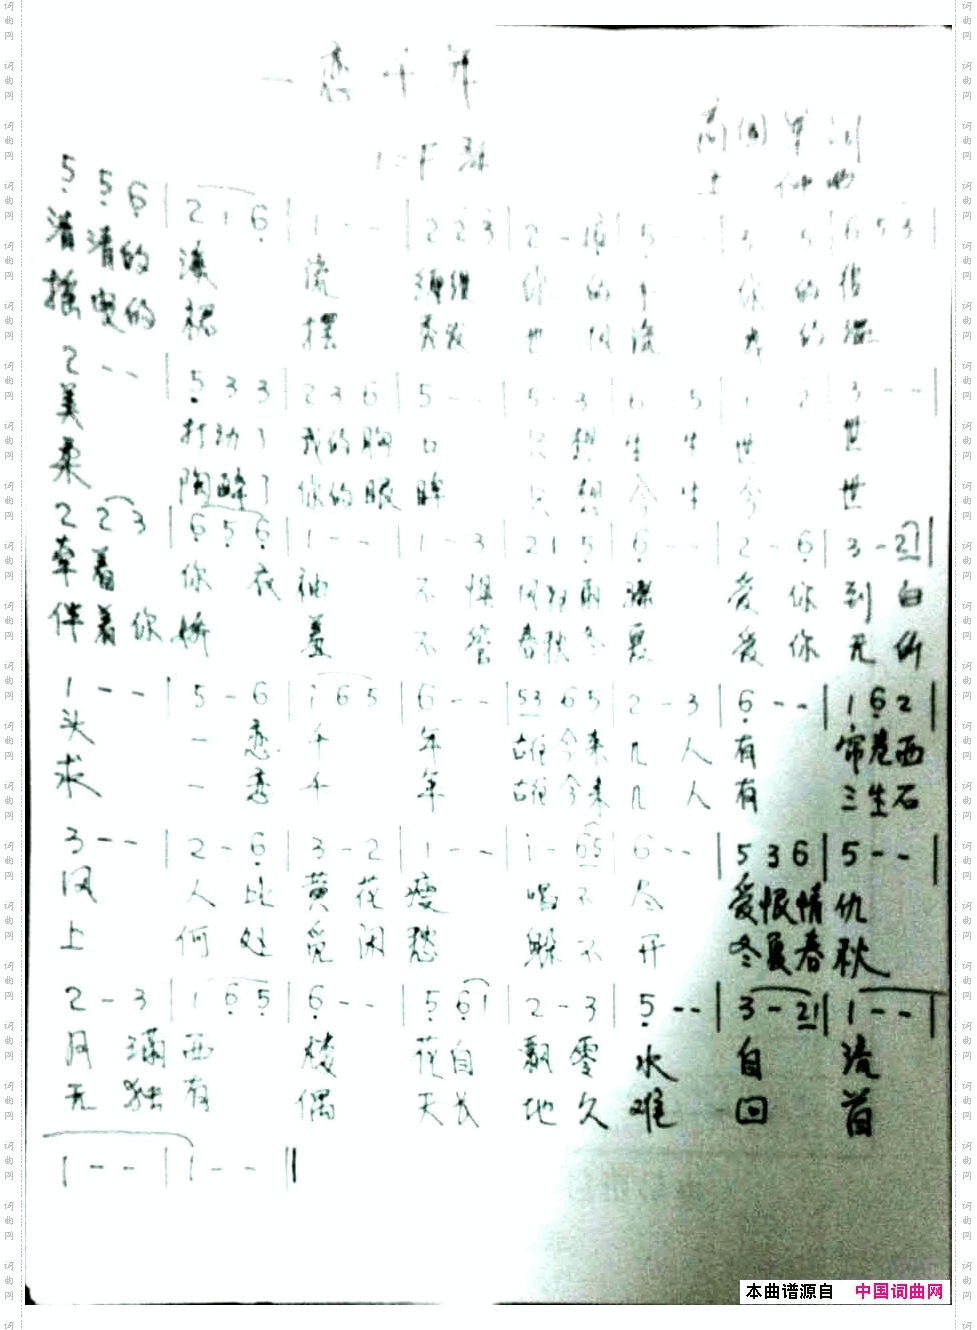 一恋千年
1=F 3/4
5 5 6 | 2 1 6 | 1 - - | 2 2 3 | 2 - 16 | 5 - - | 3 - 5 | 6 5 3 |
清清的溪 流 缠缠 你 的 手 你 的
摇曳的裙 摆 秀发 你 的
2 - - | 5 3 3 | 2 3 6 | 5 - - | 5 - 3 | 6 - 5 | 1 - 2 | 3 - - |
美 打动了 我的胸 口 只 想 生 生 世 世
柔 陶醉了 你的眼 眸 只 想 今 生 今 世
2 2 3 | 6 5 6 | 1 - - | 1 - 3 | 2 1 5 | 6 - - | 2 - 6 | 3 - 21 |
牵着 你 衣 袖 不 惧 风狂雨 骤 爱 你 到 白
伴着你 娇 羞 不 管 春秋冬 夏 爱 你 无 所
1 - - | 5 - 6 | i 6 5 | 6 - - | 53 6 5 | 2 - 3 | 6 - - | 1 6 2 |
头 一 恋 千 年 古往今来 几 人 有 帘卷西
求 一 恋 千 年 古往今来 几 人 有 三生石
3 - - | 2 - 6 | 3 - 2 | 1 - - | i - 65 | 6 - - | 5 3 6 | 5 - - |
风 人 比 黄 花 瘦 唱 不 尽 爱恨情 仇
上 何 处 觅 闲 愁 躲 不 开 冬夏春 秋
2 - 3 | 1 6 5 | 6 - - | 5 6 1 | 2 - 3 | 5 - - | 3 - 21 | 1 - - |
月 满 西 楼 花自 飘 零 水 自 流
无 独 有 偶 天长 地 久 难 回 首
1 - - | 1 - - ||
本曲谱源自 中国词曲网